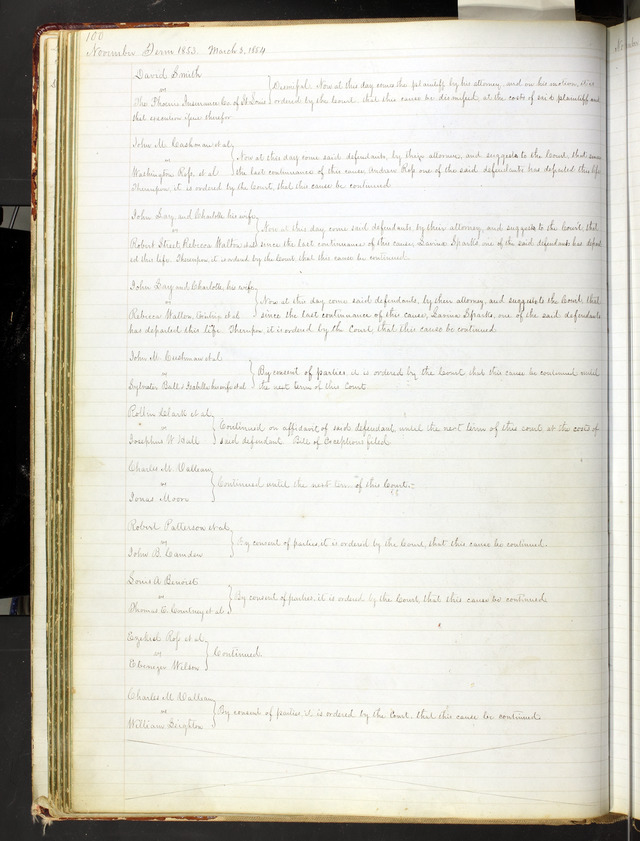 100
November Term 1853. March 3, 1854.
David Smith
vs
The Phoenix Insurance Co. of St Louis
Dismissal. Now at this day comes the plaintiff by his attorney, and on his motion, it is
ordered by the Court, that this cause be dismissed, at the costs of said plaintiff and
that execution issue therefor
John M. Cushman et al
vs
Washington Ross et al
Now at this day come said defendants, by their attorney, and suggests to the Court, that since
the last continuance of this cause, Andrew Ross one of the said defendants has departed this life
Thereupon, it is ordered by the Court, that this cause be continued
John Day and Charlotte his wife
vs
Robert Street, Rebecca Walton et al
Now at this day, come said defendants, by their attorney, and suggests to the Court, that
since the last continuance of this cause, Lavina Sparks, one of the said defendants has depart
ed this life. Thereupon, it is ordered by the Court, that this cause be continued.
John Day and Charlotte, his wife
vs
Rebecca Walton, et al
Now at this day come said defendants, by their attorney, and suggests to the Court, that
since the last continuance of this cause, Lavina Sparks, one of the said defendants
has departed this life. Thereupon, it is ordered by the Court, that this cause be continued
John M. Cushman et al
vs
Sylvester Ball & Isabella his wife et al
By consent of parties, it is ordered by the Court that this cause be continued until
the next term of this Court
Rollin Clark et al
vs
Josephus W. Hall
Continued on affidavit of said defendant until the next term of this court at the costs of
said defendant Bill of Exceptions filed
Charles M. Valleau
vs
Jonas Moore
Continued until the next term of this Court
Robert Patterson et al
vs
John B. Camden
By consent of parties, it is ordered by the Court, that this cause be continued.
Louis A Benoist
vs
Thomas C. Courtney et al
By consent of parties, it is ordered by the Court that this cause be continued
Ezekiel Ross et al
vs
Ebenezer Wilson
Continued
Charles M Valleau
vs
William
By consent of parties, it is ordered by the Court, that this cause be continued